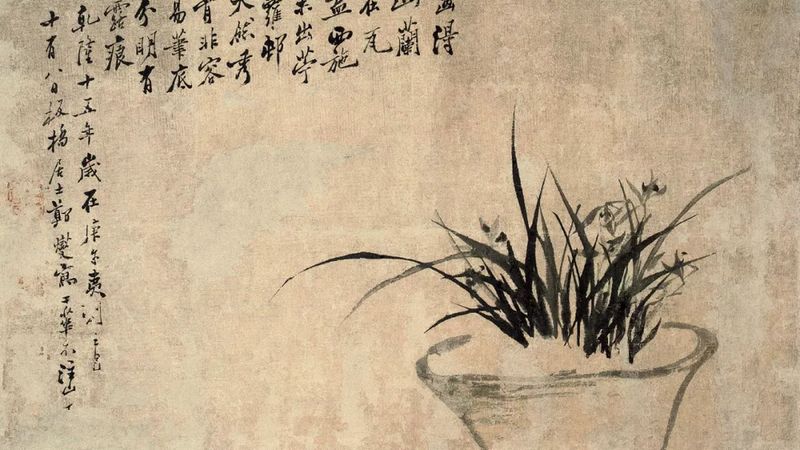 畫得
山蘭
在瓦
盆西施
未出苧
蘿邨
天然秀
骨非容
易筆底
分明有
露痕
乾隆十五年歲在庚午夷則之
十有八日板橋居士鄭燮寫于華不注山下